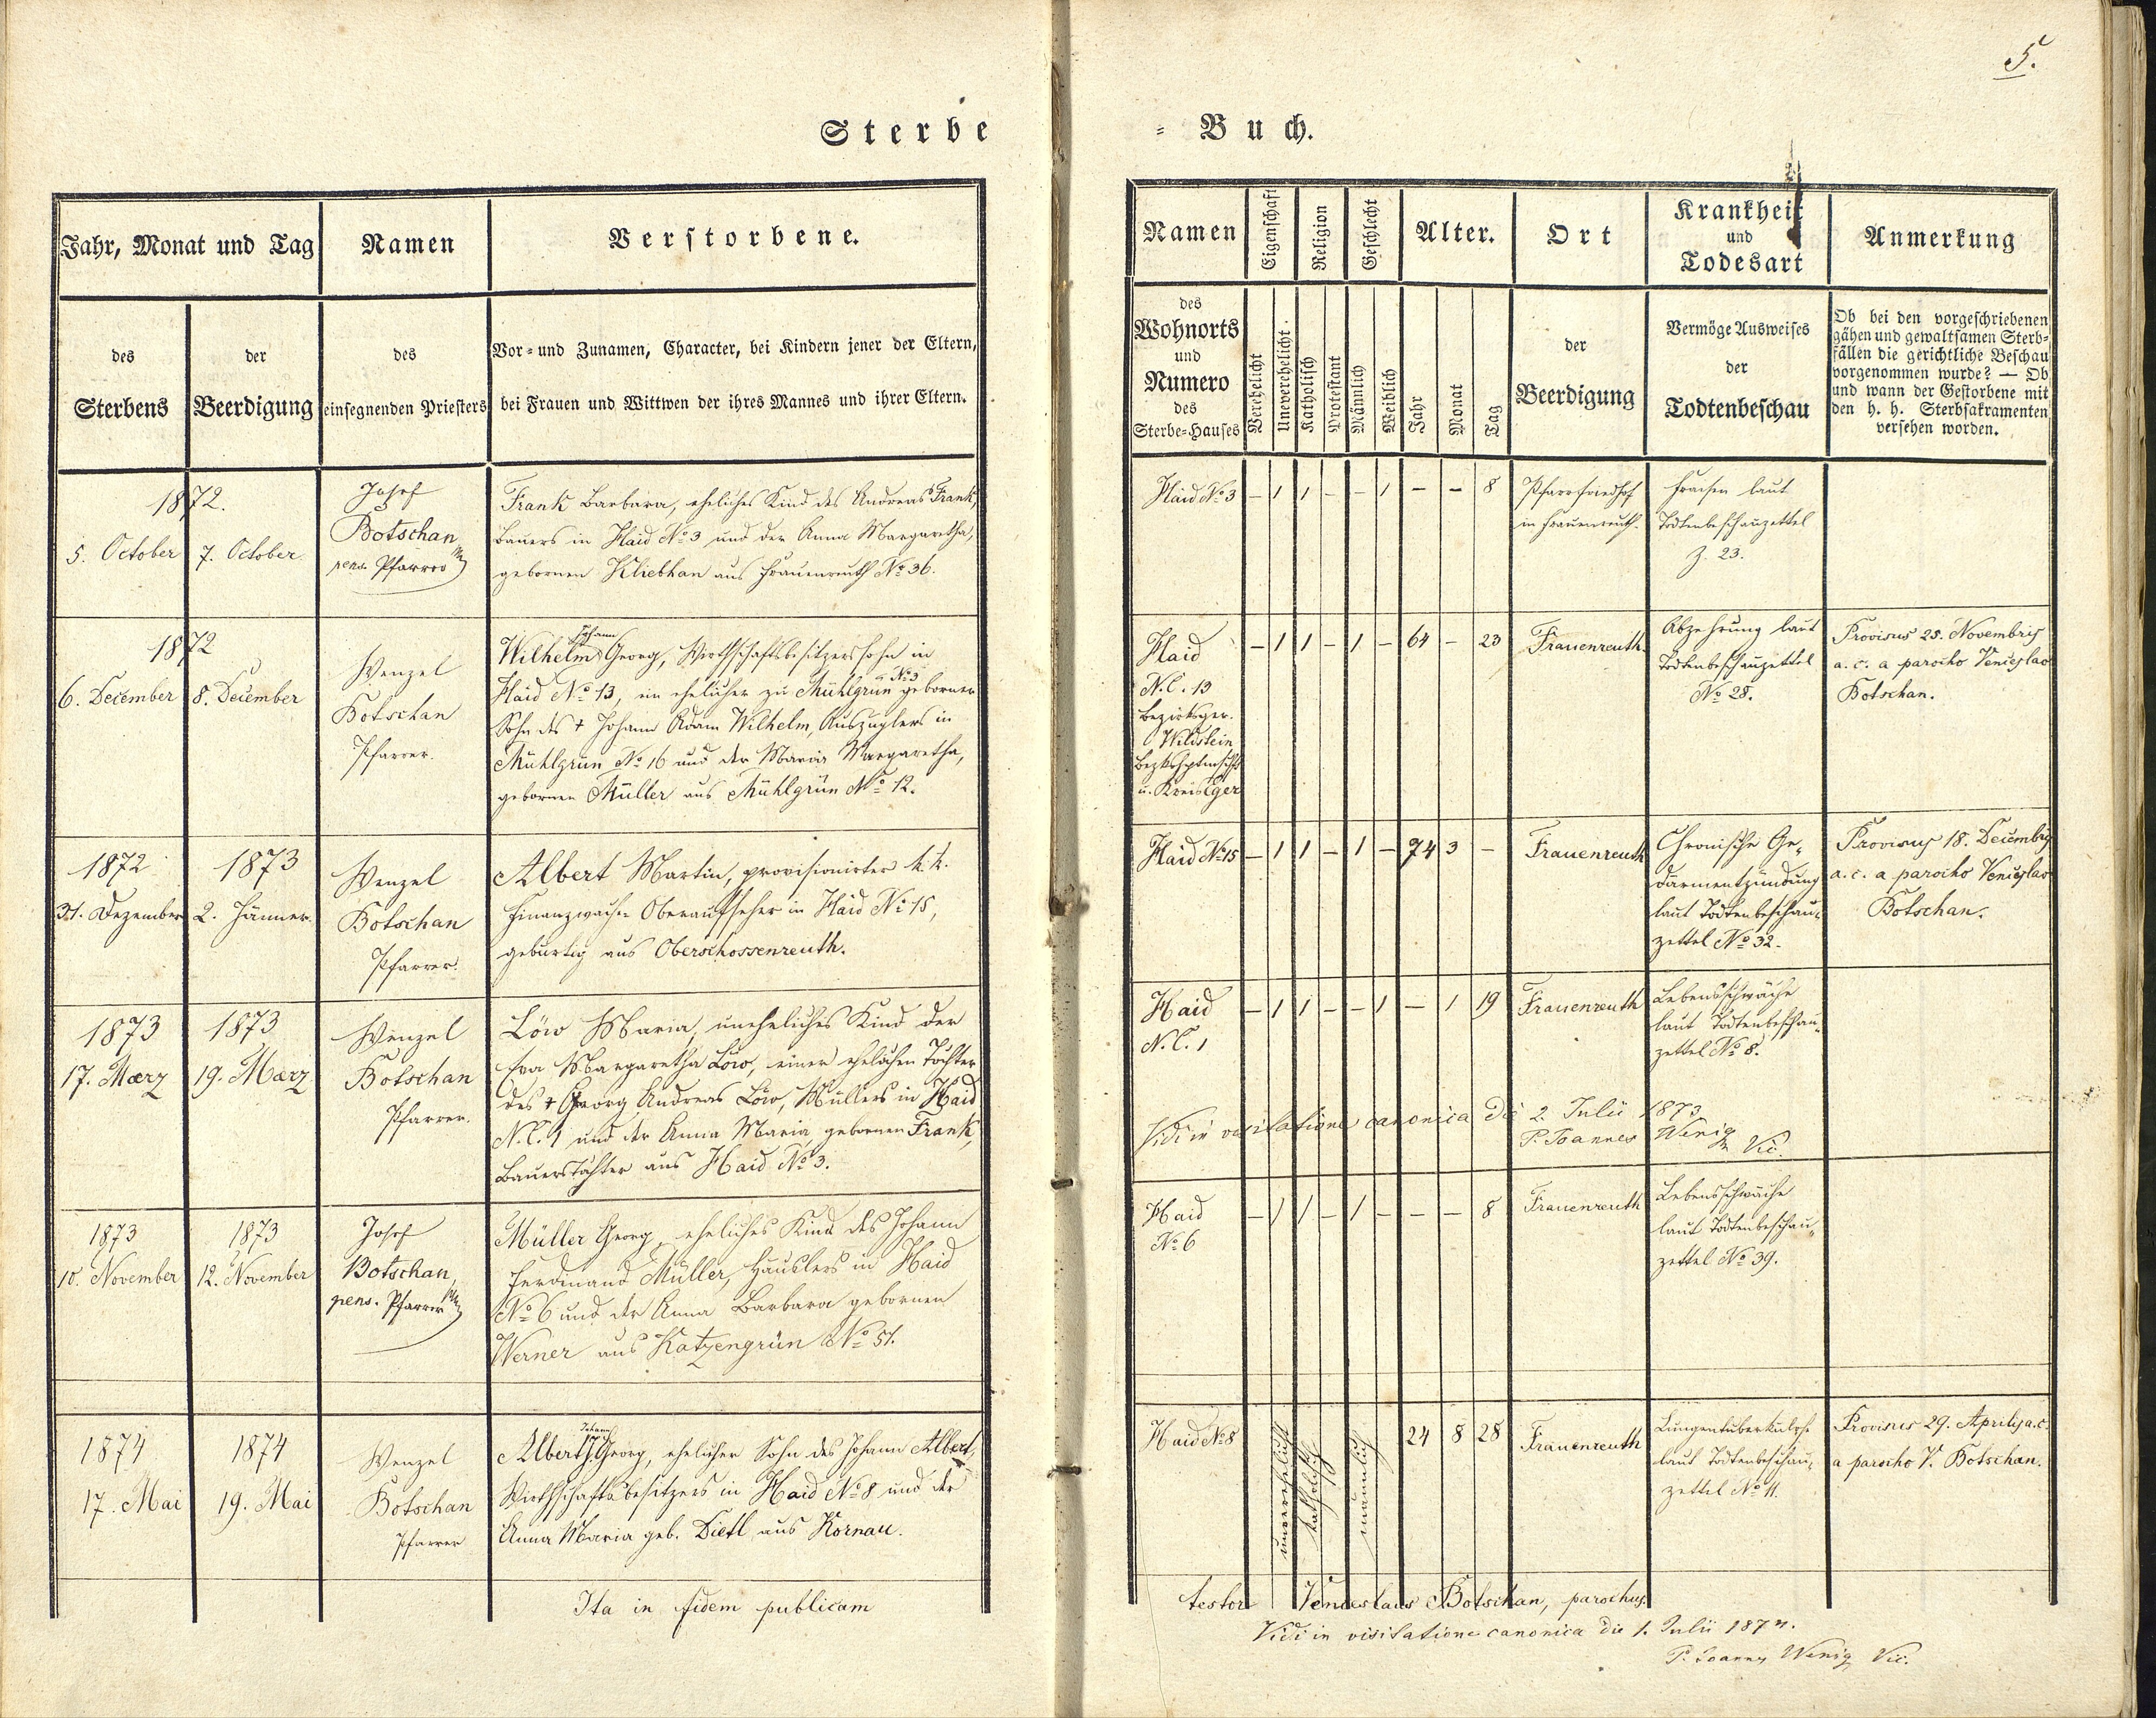 5.
Sterbe
= Buch.
Jahr, Monat und Tag
Namen
Verstorbene.
des
Sterbens
der
Beerdigung
des
einsegnenden Priesters
Vor- und Zunamen, Character, bei Kindern jener der Eltern,
bei Frauen und Wittwen der ihres Mannes und ihrer Eltern.
Namen
Eigenschaft
Religion
Geschlecht
Alter.
Ort
Krankheit
und
Todesart
Anmerkung
des
Wohnorts
und
Numero
des
Sterbe-Hauses
Verehelicht
Unverehelicht.
Katholisch
Protestant
Männlich
Weiblich
Jahr
Monat
Tag
der
Beerdigung
Vermöge Ausweises
der
Todtenbeschau
Ob bei den vorgeschriebenen
gähen und gewaltsamen Sterb-
fällen die gerichtliche Beschau
vorgenommen wurde? — Ob
und wann der Gestorbene mit
den h. h. Sterbsakramenten
versehen worden.
1872.
5. October
7. October
Josef
Botschan
pens. Pfarrer
Frank Barbara, eheliches Kind des Andreas Frank,
Bauers in Haid No 3 und der Anna Margaretha,
gebornen Kliebhan aus Frauenreuth No 36.
Haid No 3
– 1 1 – – 1 – – 8
Pfarrfriedhof
in Frauenreuth.
Fraisen laut
Todtenbeschauzettel
Z. 23.
1872
6. December
8. December
Wenzel
Botschan
Pfarrer.
Johann
Wilhelm Georg, Wirthschaftsbesitzerssohn in
Haid No 13, ein ehelicher zu Mühlgrün No 3 geborner
Sohn des + Johann Adam Wilhelm, Auszüglers in
Mühlgrün No 16 und der Maria Margaretha,
gebornen Müller aus Mühlgrün No 12.
Haid
N.C. 13
Bezirksger.
Wildstein
u. Kreis Eger
– 1 1 – 1 – 64 – 23
Frauenreuth.
Abzehrung laut
Todtenbeschauzettel
No 28.
Provisus 25. Novembris
a. c. a parocho Venceslao
Botschan.
1872
31. Dezember
1873
2. Jänner.
Wenzel
Botschan
Pfarrer.
Albert Martin, provisionirter k. k.
Finanzwach- Oberaufseher in Haid No 15,
gebürtig aus Oberschossenreuth.
Haid No 15
– 1 1 – 1 – 74 3 –
Frauenreuth
Chronische Ge-
därmentzündung
laut Todtenbeschau-
zettel No 32.
Provisus 18. Decembris
a. c. a parocho Venceslao
Botschan.
1873
17. Maerz
1873
19. Maerz
Wenzel
Botschan
Pfarrer.
Löw Maria, uneheliches Kind der
Eva Margaretha Löw, einer ehelichen Tochter
des + Georg Andreas Löw, Müllers in Haid
N.C. 1 und der Anna Maria, gebornen Frank,
Bauerstochter aus Haid No 3.
Haid
N.C. 1
– 1 1 – – 1 – 1 19
Frauenreuth
Lebensschwäche
laut Todtenbeschau-
zettel No 8.
Vidi in visitatione canonica die 2. Julii 1873
P. Joannes Wenig
Vic.
1873
10. November
1873
12. November
Josef
Botschan,
pens. Pfarrer
Müller Georg, eheliches Kind des Johann
Ferdinand Müller, Häuslers in Haid
No 6 und der Anna Barbara gebornen
Werner aus Katzengrün No 51.
Haid
No 6
– 1 1 – 1 – – – 8
Frauenreuth
Lebensschwäche
laut Todtenbeschau-
zettel No 39.
1874
17. Mai
1874
19. Mai
Wenzel
Botschan
Pfarrer
Johann
Albert Georg, ehelicher Sohn des Johann Albert,
Wirthschaftsbesitzers in Haid No 8 und der
Anna Maria geb. Dietl aus Kornau.
Haid No 8
unverehelicht
katholisch
männlich
24 8 28
Frauenreuth
Lungentuberkulose
laut Todtenbeschau-
zettel No 11.
Provisus 29. Aprilis a. c.
a parocho V. Botschan.
Ita in fidem publicam
testor Venceslaus Botschan, parochus.
Vidi in visitatione canonica die 1. Julii 1874.
P. Joannes Wenig Vic.